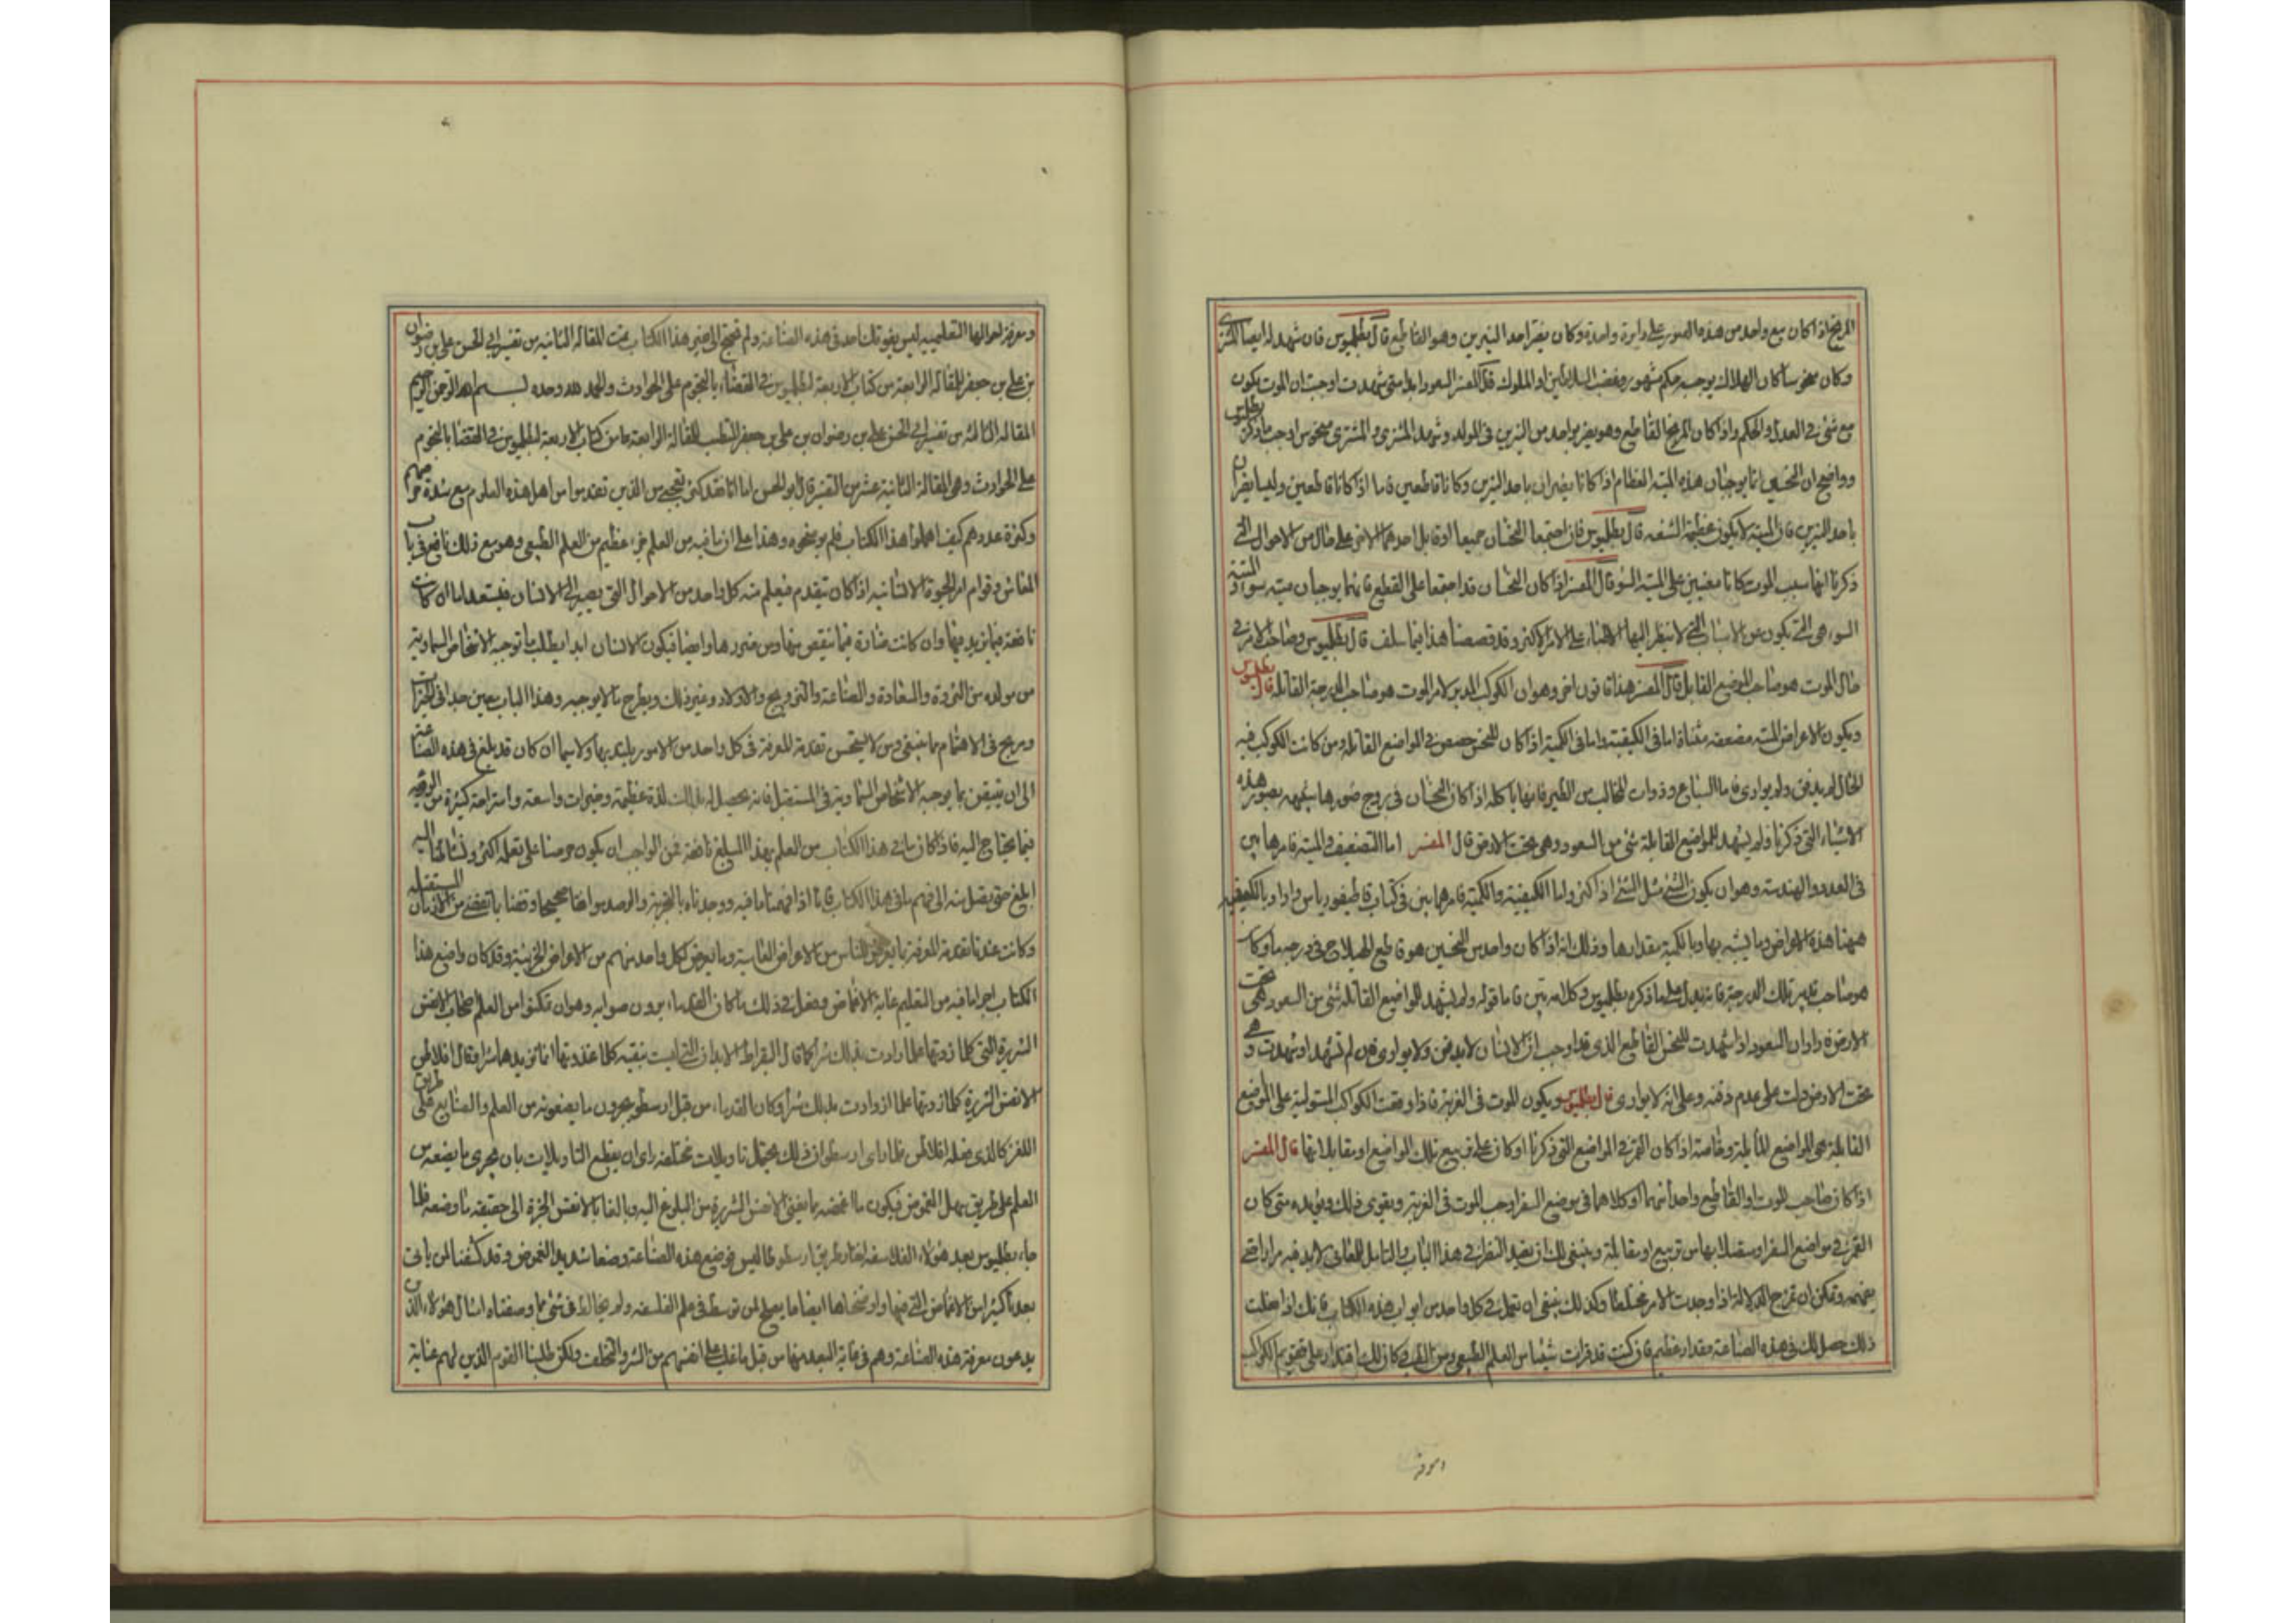 المريخ اذا كان مع واحد من هذه الصور على دايرة واحدة وكان يضر احد النيرين وهو القاطع قال بطلميوس فان شهد له ايضا المشترى
وكان منحوسا كان الهلاك بوجب حكم مشهور وغضب السلاطين او الملوك قال المفسر السعود ابدا متى شهدت اوجبت ان الموت يكون
مع شئ من العدل والحكم واذا كان المريخ القاطع وهو يضر بواحد من النيرين فى المولد وشهد المشترى والمشترى منحوس اوجب ما ذكره بطلميوس
وواضح ان النحسين انما يوجبان هذه الميتة العظام اذا كانا يضران باحد النيرين وكانا قاطعين فاما اذا كانا قاطعين وليسا يضران
باحد النيرين فان الميتة لا يكون عظيمة الشنعه قال بطلميوس فان اجتمعا النحسان جميعا او قابل احدهما الاخر على حال من الاحوال التى
ذكرنا انها سبب الموت كانا معينين على الميتة السوء قال المفسر اذا كان النحسان قد اجتمعا على القطع فانهما يوجبان ميته سوء والميتة
السوء هى التى يكون عن الاسباب التى لا ينظر اليها الاطباء على الامر الاكثر وقد قصصنا هذا فيما سلف قال بطلميوس وصاحب الامر فى
حال الموت هو صاحب الموضع القابل قال المفسر هذا قانون اخر وهو ان الكوكب المدبر لامر الموت هو صاحب الدرجة القاتلة قال بطلميوس
ويكون الاعراض الميتة مضعفه مثناة اما فى الكيفية واما فى الكمية اذا كان للنحس حصص فى المواضع القاتله ومن كانت الكوكب فيه
الحال لم يدفن ولم يوارى فاما السباع وذوات المخالب من الطير فانها تاكله اذا كان النحسان فى بروج صورها شبيهه بصور هذه
الاشياء التى ذكرنا ولم يشهد للمواضع القاتلة شئ من السعود وهى تحت الارض قال المفسر اما التضعيف والميتة فامرها بين
فى العدد والهندسة وهو ان يكون الشئ مثل الشئ اذ اكثر واما الكيفية والكمية فامرهما بين فى كتاب قاطيغورياس واراد بالكيفية
ههنا هذه الاعراض وما يشبه بها وبالكمية مقدارها وذلك انه اذا كان واحد من النحسين هو قاطع الهيلاج فى درجه ما وكان
هو صاحب تدبير تلك الدرجة فانه يدل على ما ذكره بطلميوس وكلامه بين فاما قوله ولم يشهد للمواضع القاتله شئ من السعود وهى تحت
الارض فاراد ان السعود اذا شهدت للنحس القاطع الذى قد اوجب ان الانسان لا يدفن ولا يوارى فان لم تشهد او شهدت وهى
تحت الارض دلت على عدم دفنه وعلى انه لا يوارى قال بطلميوس ويكون الموت فى الغربة اذا وقعت الكواكب المستولية على المواضع
القاتلة فى المواضع المائلة وخاصة اذا كان القمر فى المواضع التى ذكرنا او كان على تربيع تلك المواضع او مقابلاتها قال المفسر
اذا كان صاحب الموت او القاطع واحدا منهما او كلاهما فى موضع السفر اوجب الموت فى الغربة ويقوى ذلك ويؤيده متى كان
القمر فى مواضع السفر او متصلا بها من تربيع او مقابلة وينبغى لك ان تعيد النظر فى هذا الباب والتامل للمعانى لابد فيه مرارا حتى
يفهمه ويمكن ان تمزج الدلالة اذا وجدت الامر مختلطا وكذلك ينبغى ان تعمل فى كل واحد من ابواب هذه الكتاب فانك اذا فعلت
ذلك حصل لك فى هذه الصناعة مقدار عظيم فان كنت قد قرات شيئا من العلم الطبيعى ومن الطب وكان لك اقتدار على تقويم الكواكب
ومعرفة احوالها التعلميه ليس يفوتك احد فى هذه الصناعة ولم تحتج الى غير هذا الكتاب تمت المقالة الثانيه من تفسير ابى الحسن على بن رضوان
بن على بن جعفر للمقالة الرابعة من كتاب الاربعة لبطلميوس فى القضاء بالنجوم على الحوادث والحمد لله وحده بسم الله الرحمن الرحيم
المقالة الثالثه من تفسير ابى الحسن على بن رضوان بن على بن جعفر المتطبب للمقالة الرابعة من كتاب الاربعة لبطلميوس فى القضا بالنجوم
على الحوادث وهى المقالة الثانية عشر من التفسير قال ابو الحسن اما انا فقد كثر تعجبى من الذين تقدموا من اهل هذه العلوم مع شدة حرصهم
وكثرة عددهم كيف اهملوا هذا الكتاب فلم يوضحوه وهذا على ان ما فيه من العلم جزء عظيم من العلم الطبيعى وهو مع ذلك نافع فى باب
المعاش وقوام امر الحيوة الانسانيه اذ كان يتقدم فيعلم منه كل واحد من الاحوال التى يصير الى الانسان فيستعد لها ان كانت
نافعة فيما يزيد فيها وان كانت ضارة فيما ينقص منها ومن ضررها وايضا فيكون الانسان ابدا يطلب ما توجبه الاشخاص السماوية
من مولده من الثروة والسعادة والصناعة والتزويج والاولاد وغير ذلك ويطرح ما لا يوجبه وهذا الباب معين جدا فى الخيرات
ومريح فى الاهتمام بما ينبغى ومن لا يستحسن تقدمة المعرفة فى كل واحد من الامور يلتذ بها ولا سيما ان كان قد بلغ فى هذه الصناعة
الى ان يتيقن بما يوجبه الاشخاص السماوية فى المستقبل فانه يحصل له بذلك لذة عظيمة وخيرات واسعة واستراحة كثيرة من
فيما يحتاج اليه فاذا كان ما فى هذا الكتاب من العلم بهذا المبلغ نافعة فمن الواجب ان يكون حرصنا على تعلمه اكثر ونشاطنا اليه
ابلغ حتى يصل منه الى فهم ما فى هذا الكتاب فانا اذا فهمنا ما فيه ووجدناه بالتجربة والرصد موافقا صحيحا وقضنا بما يقتضى من الازمان المستقبله
وكانت عندنا تقدمة المعرفة بما يعرض للناس من الاعراض العامية وما يعرض لكل واحد منهم من الاعراض الجزئية وقد كان واضع هذا
الكتاب اجرا ما فيه من التعليم غاية الاغماض وفعل ذلك ما كان القدماء يرون صوابه وهو ان يكتموا من العلم اصحاب الانفس
الشريرة التى كلما زدتها علما زادت بذلك شرا كما قال ابقراط الابدان التى ليست بنقيه كلما غذوتها انما تزيدها شرا وقال افلاطن
الانفس الشريرة كلما زدتها علما ازدادت بذلك شرا وكان القدماء من قبل ارسطو يجرون ما يضعونه من العلم والصنايع على طريق
اللغز كالذى فعله افلاطن فلما راى ارسطو ان ذلك يحتمل تاويلات مختلفه راى ان يقطع التاويلات بان يجرى ما يضعه من
العلم على طريق سهل الغموض فيكون ما اغمضه بما يعنى الانفس الشريرة من البلوغ اليه وبالغا بالانفس الخيرة الى حقيقه ما وضعه فلما
جاء بطلميوس بعد هؤلاء الفلاسفه اختار طريق ارسطو طاليس فوضع هذه الصناعة وضعا شديد الغموض وقد كشفنا لمن ياتى
بعدنا كثيرا من الاغماض التى فيها واوضحناها ايضاحا يصلح لمن توسط فى علم الفلسفه ولم يخالط فى شئ مما وصفناه امثال هؤلاء الذين
يدعون معرفة هذه الصناعة وهم فى غاية البعد منها من قبل ما غلب على انفسهم من الشر والتخلف ولكن طلبنا القوم الذين لهم عناية